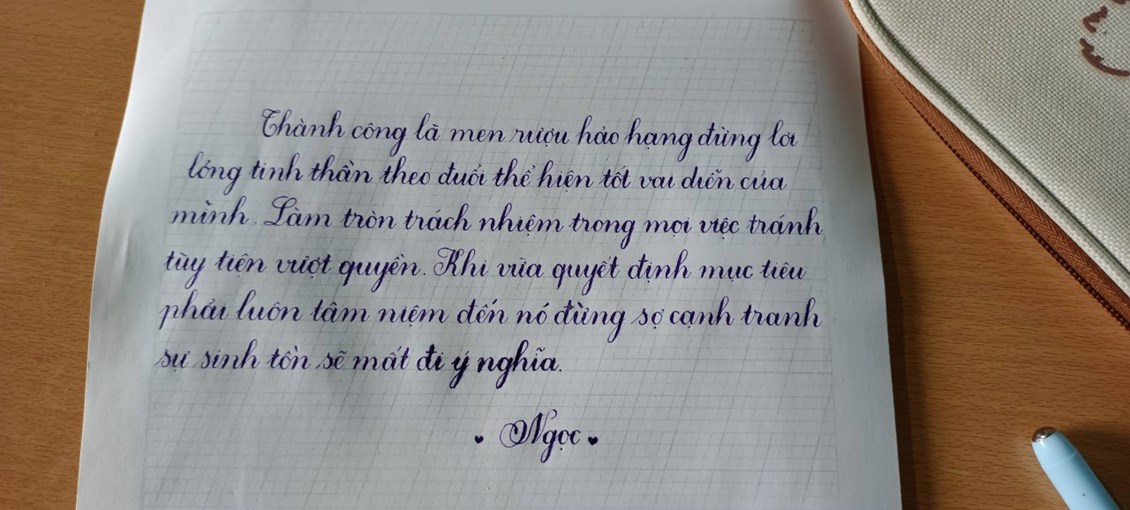 Thành công là men rượu hảo hạng đừng lơi
lỏng tinh thần theo đuổi thể hiện tốt vai diễn của
mình. Làm tròn trách nhiệm trong mọi việc tránh
tùy tiện vượt quyền. Khi vừa quyết định mục tiêu
phải luôn tâm niệm đến nó đừng sợ cạnh tranh
sự sinh tồn sẽ mất đi ý nghĩa.
Ngọc